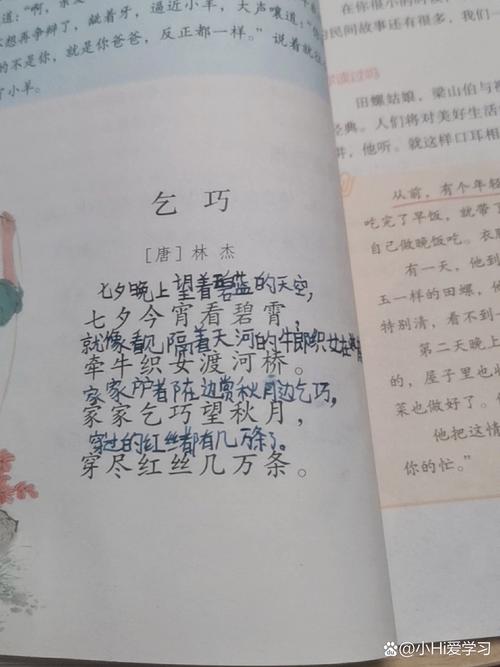 道：“啊，亲
想再争辩了，龇着牙，逼近小羊，大声嚷道：“你
的不是你，就是你爸爸，反正都一样。”说着就往
了小羊。
乞巧
[唐]林杰
七夕晚上望着碧蓝的天空，
七夕今宵看碧霄，
就像看见隔着天河的牛郎织女在
牵牛织女渡河桥。
家家户户都在边赏秋月边乞巧，
家家乞巧望秋月，
穿过的红丝都有几万条了。
穿尽红丝几万条。
在你很小的时候，
民间故事还有很多，我们一
读过吗
田螺姑娘，梁山伯与祝
经典。人们将对美好生活
讲，他听。就这样口耳相
从前，有个年轻
吃完了早饭，就带了
自己做晚饭吃。衣服
有一天，他到
玉一样的田螺，他
特别清，看不到一
第二天晚上
的，屋子里也收
菜也做好了。他
他把这情
你的忙。”
小Hi爱学习